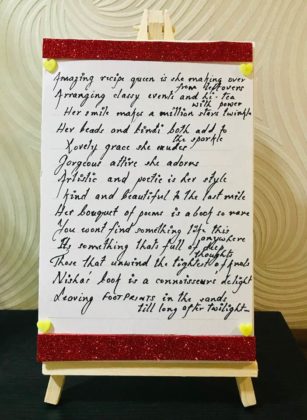 Amazing recipe queen is she making over
from leftovers
Arranging classy events and hi-tea
with power
Her smile makes a million stars twinkle
Her beads and bindi both add to
the sparkle
Lovely grace she exudes
Gorgeous attire she adorns
Artistic and poetic is her style
Kind and beautiful to the last mile
Her bouquet of poems is a boof so rare
You wont find something like this
anywhere
Its something thats full of deep
thoughts
Those that unwind the tightest of knots
Nisha's boof is a connoisseurs delight
Leaving FOOTPRINTS in the sands
till long after twilight_